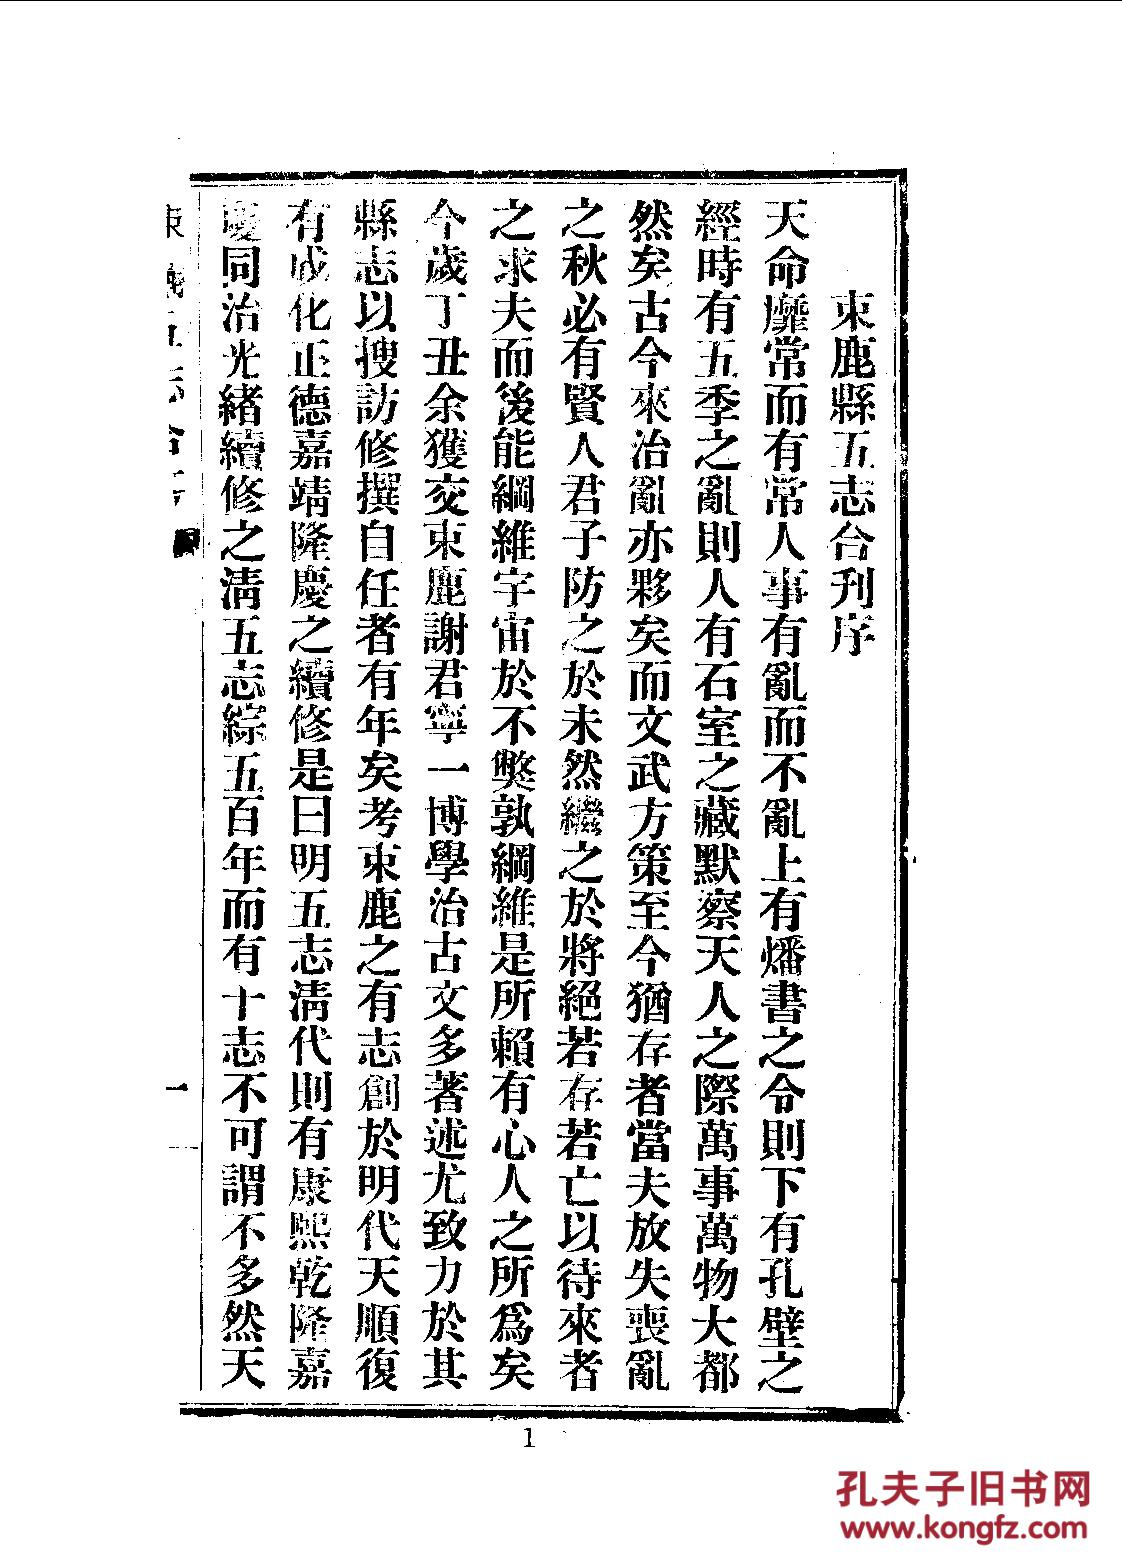 束鹿縣五志合刋序
天命靡常而有常人事有亂而不亂上有燔書之令則下有孔壁之
經時有五季之亂則人有石室之藏默察天人之際萬事萬物大都
然矣古今來治亂亦夥矣而文武方策至今猶存者當夫放失喪亂
之秋必有賢人君子防之於未然繼之於將絕若存若亡以待來者
之求夫而後能綱維宇宙於不獘孰綱維是所賴有心人之所爲矣
今歲丁丑余獲交束鹿謝君寧一博學治古文多著述尤致力於其
縣志以搜訪修撰自任者有年矣考束鹿之有志創於明代天順復
有成化正德嘉靖隆慶之續修是曰明五志清代則有康熙乾隆嘉
慶同治光緒續修之清五志綜五百年而有十志不可謂不多然天
束鹿五志合
一
1
孔夫子旧书网
www.kongfz.com